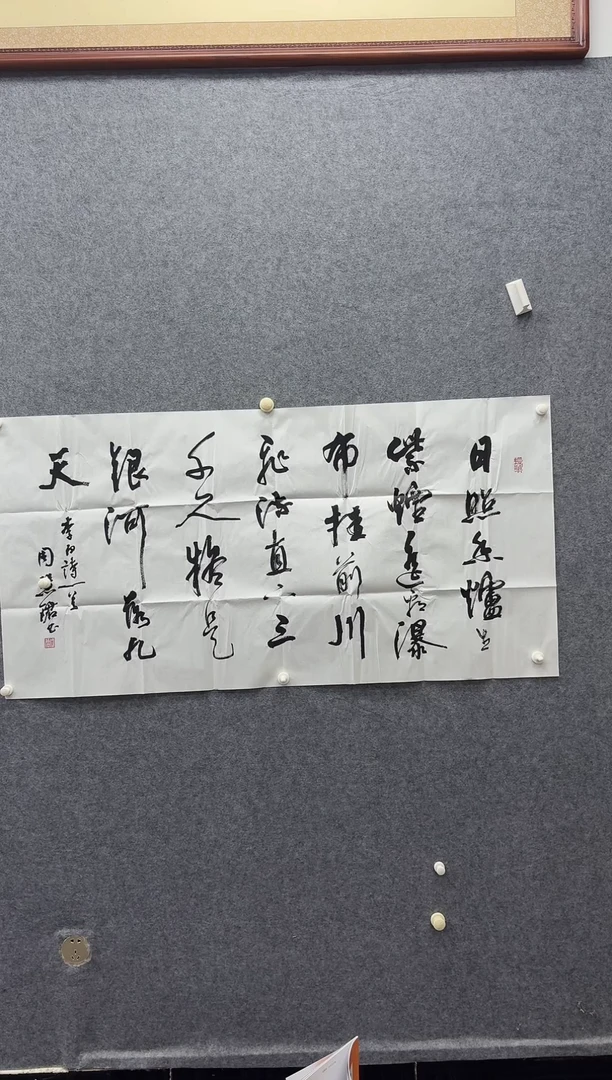 日照香爐生
紫煙遙看瀑
布挂前川
飛流直下三
千尺疑是
銀河落九
天
李白詩一首
周